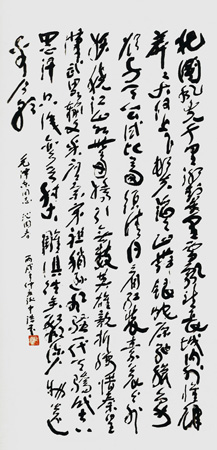 北国風光千里冰封萬里雪飘望長城内外惟余
莽莽大河上下顿失滔滔山舞銀蛇原馳蜡象
欲与天公試比高須晴日看红装素裹分外
妖娆江山如此多娇引无數英雄競折腰惜秦皇
漢武略输文采唐宗宋祖稍逊風骚一代天骄成吉
思汗只识弯弓射大雕俱往矣數風流人物还
看今朝
毛泽东同志沁园春
丙戌年仲秋